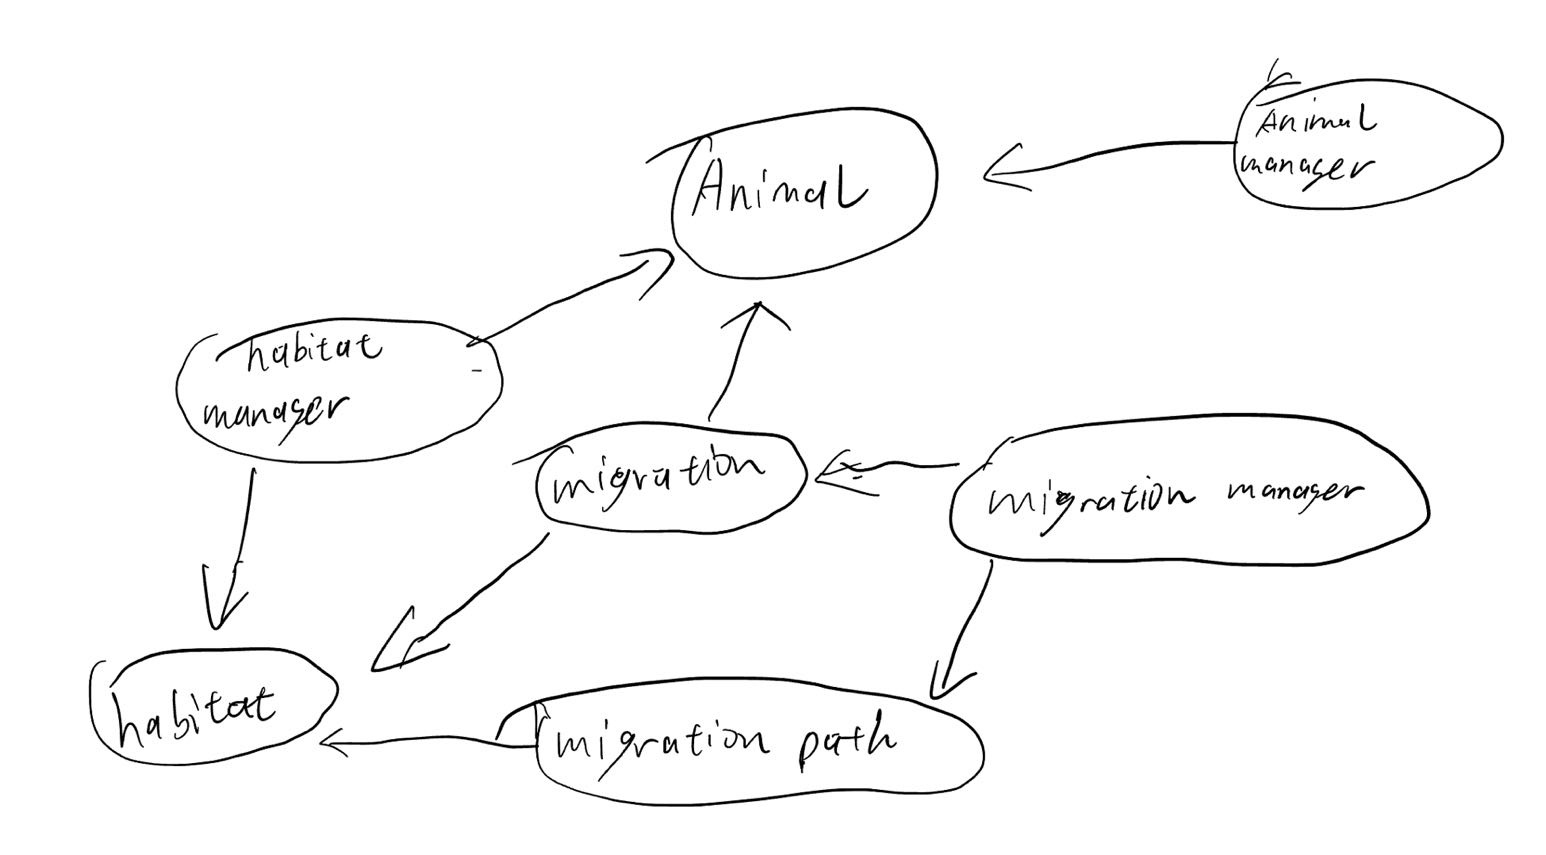 Animal
manager
Animal
habitat
manager
migration
migration manager
habitat
migration path